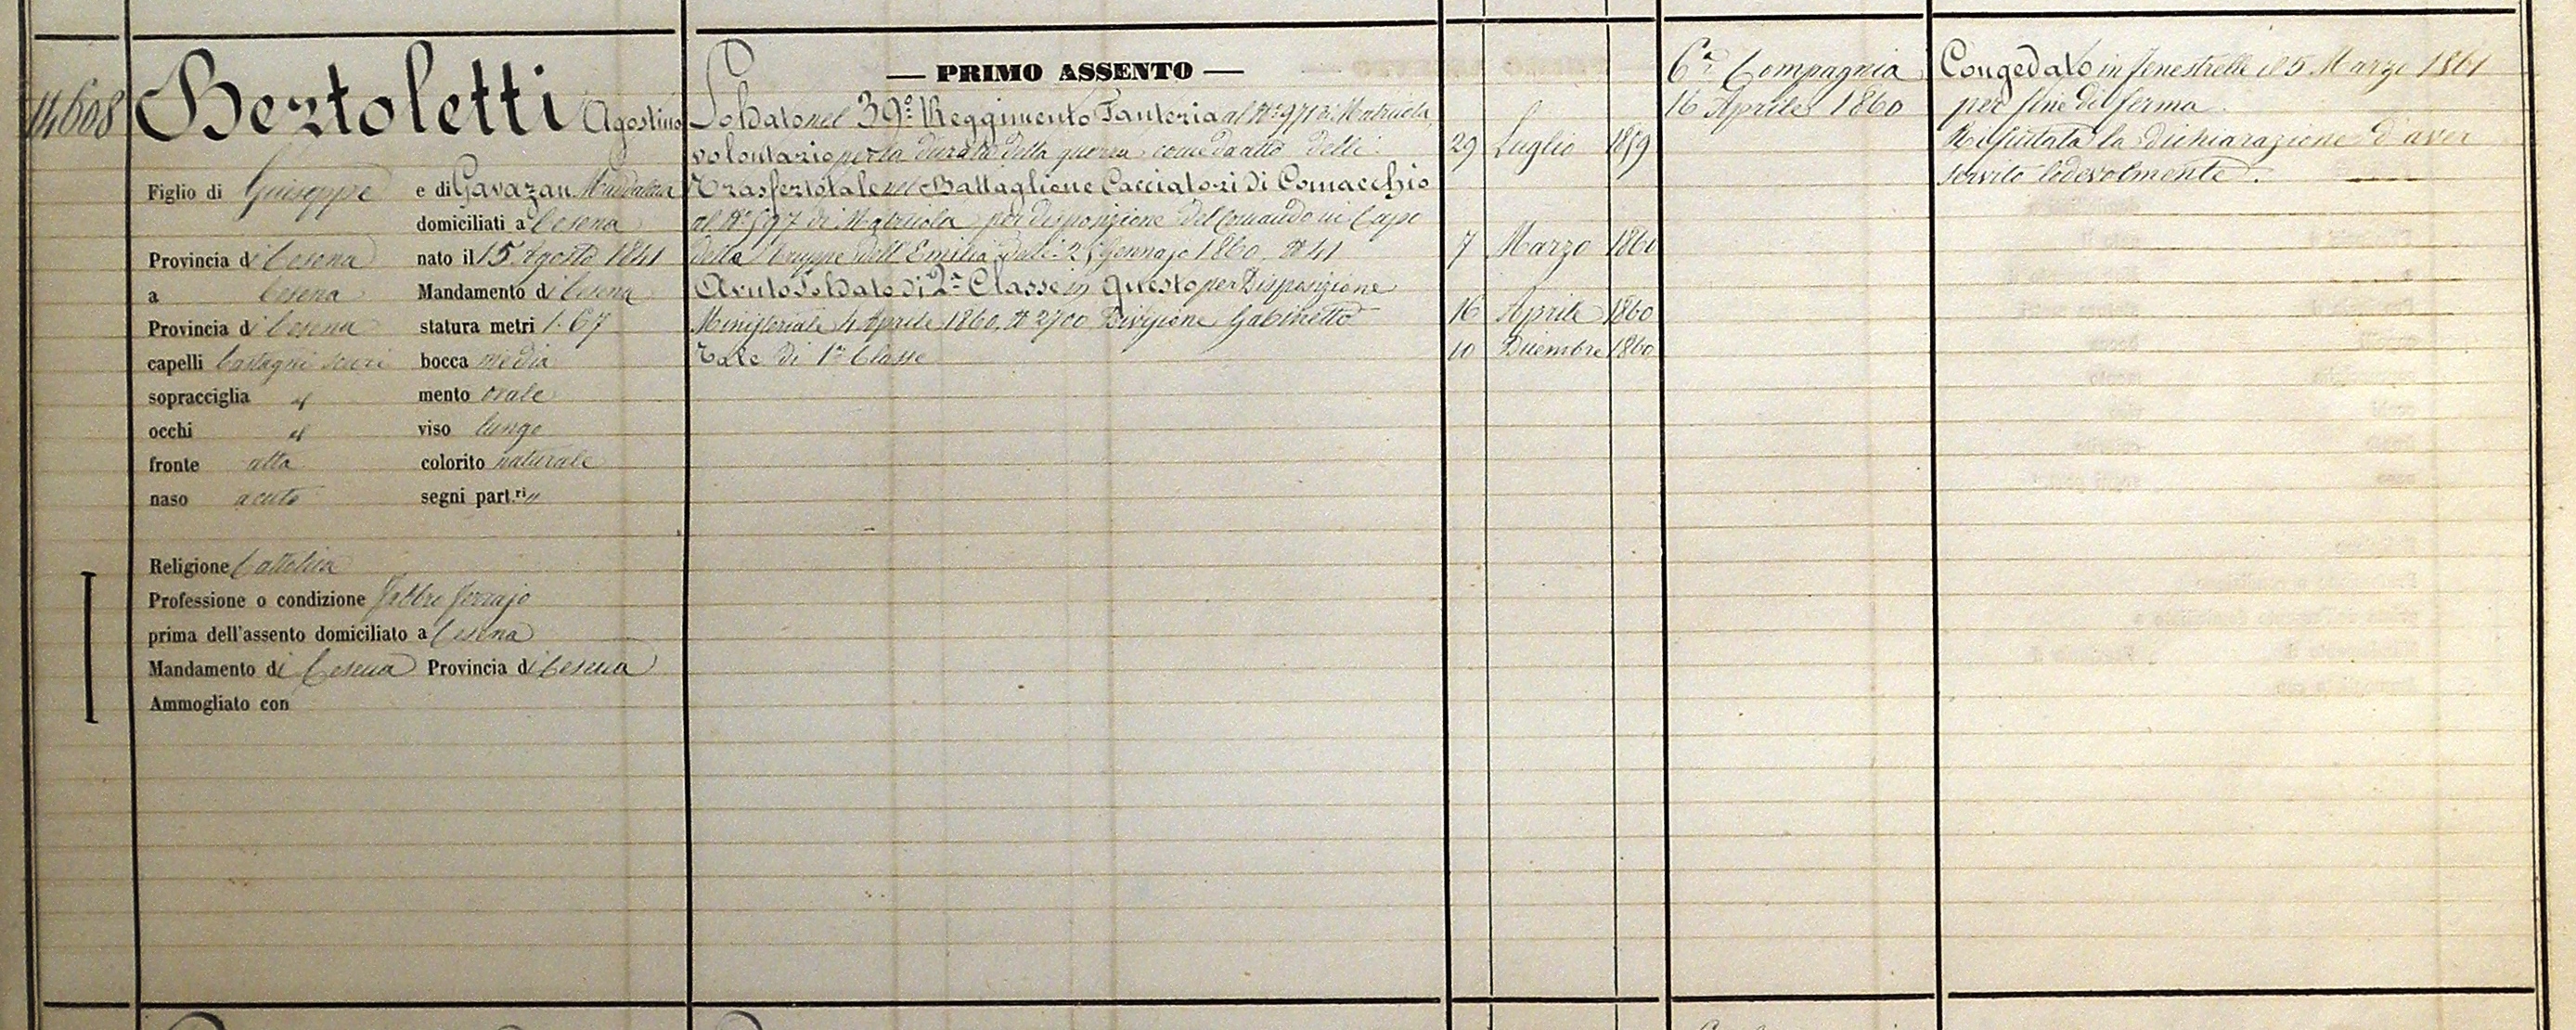 14608
Bertoletti Agostino
Figlio di Giuseppe e di Gavazan Maddalena
domiciliati a Cesena
Provincia di Cesena nato il 15 Agosto 1841
a Cesena Mandamento di Cesena
Provincia di Cesena statura metri 1.67
capelli Castagni scuri bocca media
sopracciglia id mento ovale
occhi id viso lungo
fronte alta colorito naturale
naso acuto segni part.ri "
Religione Cattolica
Professione o condizione Fabbro ferrajo
prima dell'assento domiciliato a Cesena
Mandamento di Cesena Provincia di Cesena
Ammogliato con
— PRIMO ASSENTO —
Soldato nel 39º Reggimento Fanteria al Nº 971 di Matricola,
volontario per la durata della guerra come da atto delli 29 Luglio 1859
Trasferto tale nel Battaglione Cacciatori di Comacchio
al Nº 597 di Matricola per disposizione del Comando in Capo
della Truppe dell'Emilia delli Gennajo 1860, Nº 41 7 Marzo 1860
Avuto Soldato di 2ª Classe in questo per Disposizione
Ministeriale 4 Aprile 1860, Nº 2700 Divisione Gabinetto 16 Aprile 1860
Tale di 1ª Classe 10 Dicembre 1860
6ª Compagnia
16 Aprile 1860
Congedato in Fenestrelle il 5 Marzo 1861
per fine di ferma.
Rifiutata la dichiarazione d'aver
servito lodevolmente.